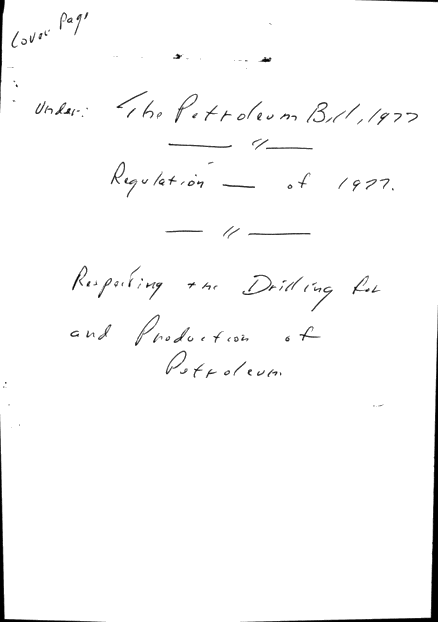 Cover Page
Under: The Petroleum Bill, 1977
— " —
Regulation — of 1977.
— " —
Respecting the Drilling for
and Production of
Petroleum